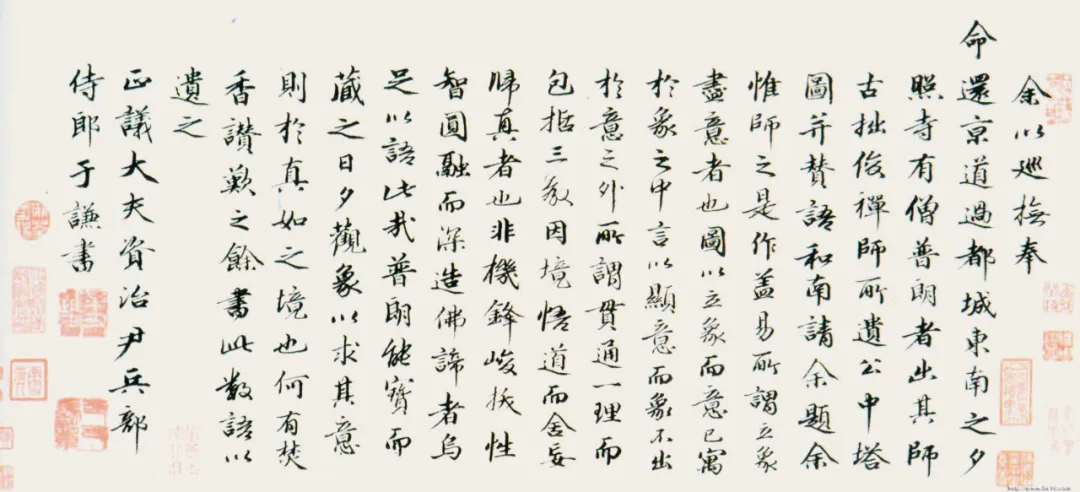 余以巡撫奉
命還京道過都城東南之夕
照寺有僧普朗者出其師
古拙俊禪師所遺公中塔
圖并贊語和南請余題余
惟師之是作盖易所謂立象
盡意者也圖以立象而意已寓
於象之中言以顯意而象不出
於意之外所謂貫通一理而
包括三教因境悟道而舍妄
歸真者也非機鋒峻拔性
智圓融而深造佛諦者烏
足以語此哉普朗能寶而
藏之日夕觀象以求其意
則於真如之境也何有焚
香讃歎之餘書此數語以
遺之
正議大夫資治尹兵部
侍郎于謙書